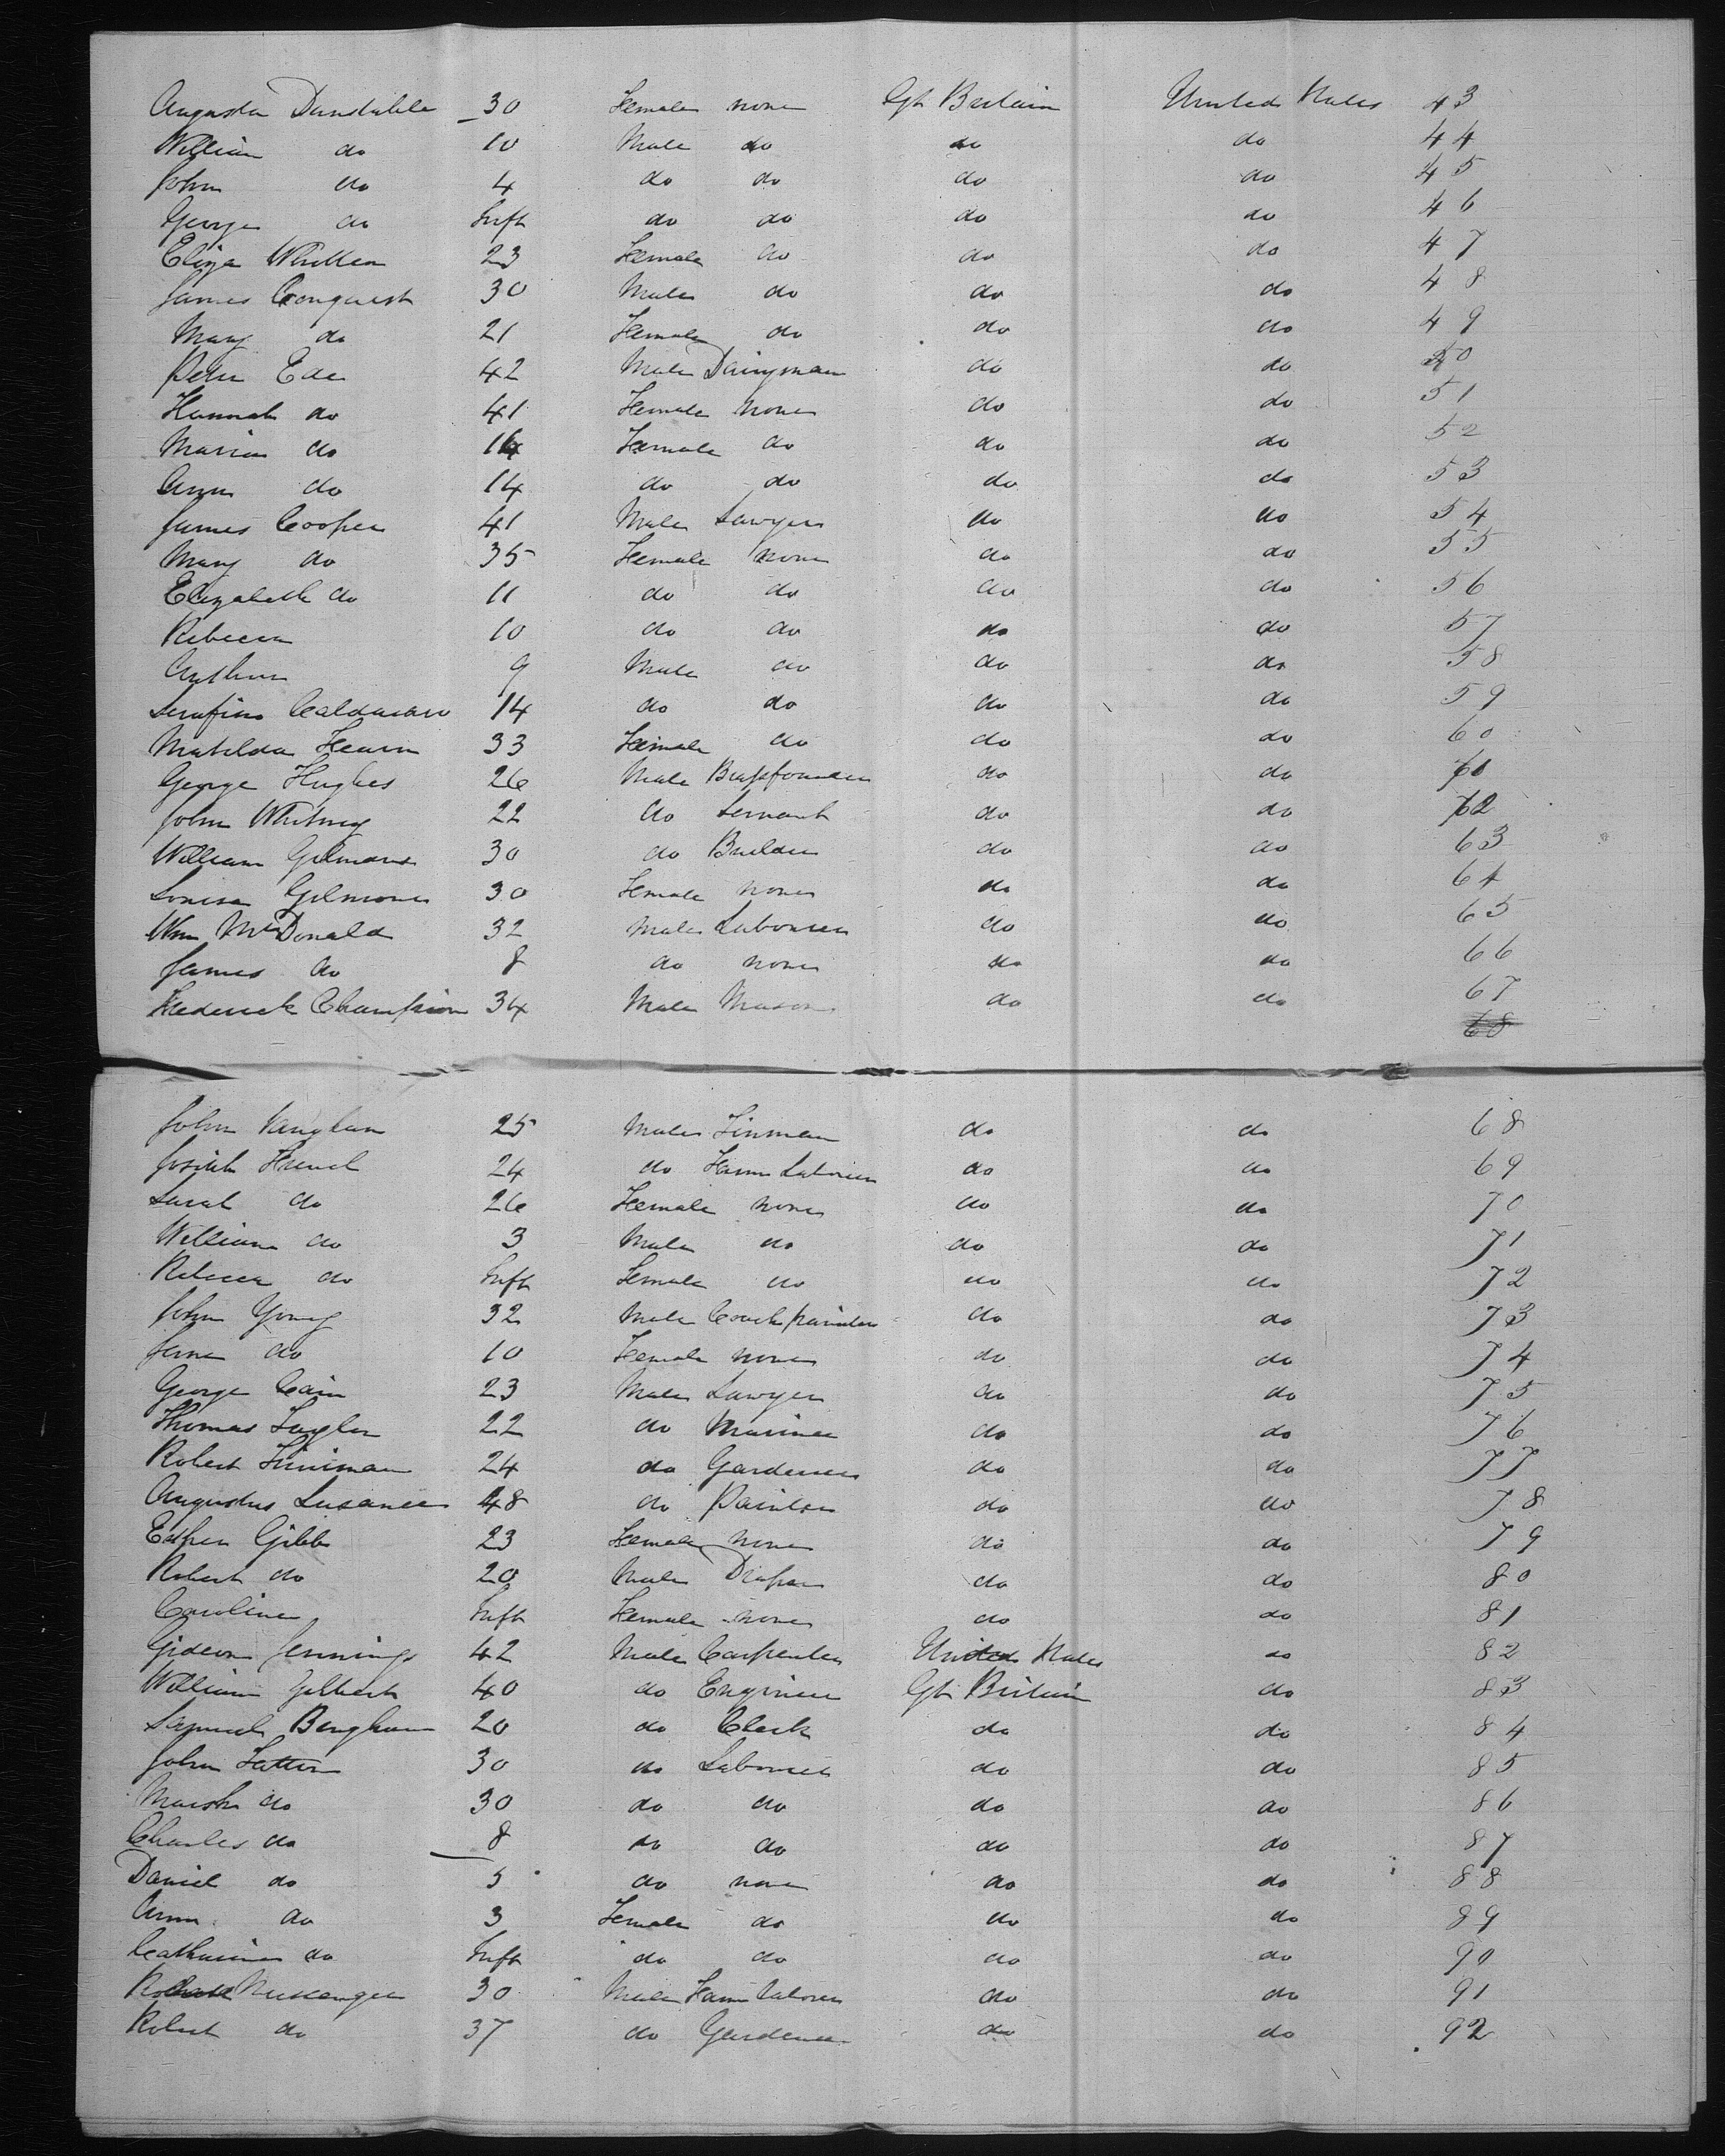 Augusta Dunstable 30 Female none Gt Britain United States 43
William do 10 Male do do do 44
John do 4 do do do do 45
George do Inft do do do do 46
Eliza Whitten 23 Female do do do 47
James Conquest 30 Male do do do 48
Mary do 21 Female do do do 49
Peter Ede 42 Male Dairyman do do 50
Hannah do 41 Female none do do 51
Maria do 16 Female do do do 52
Ann do 14 do do do do 53
James Cooper 41 Male Sawyer do do 54
Mary do 35 Female none do do 55
Elizabeth do 11 do do do do 56
Rebecca 10 do do do do 57
Arthur 9 Male do do do 58
Serafino 14 do do do do 59
Matilda Hearn 33 Female do do do 60
George Hughes 26 Male Brassfounder do do 61
John Whitney 22 do Servant do do 62
William Gilmore 30 do Builder do do 63
Louisa Gilmore 30 Female none do do 64
Wm McDonald 32 Male Labourer do do 65
James do 8 do none do do 66
Frederick Champion 34 Male Mason do do 67
68
John Vaughan 25 Male Tinman do do 68
Josiah French 24 do Farm Laborer do do 69
Sarah do 26 Female none do do 70
William do 3 Male do do do 71
Rebecca do Inft Female do do do 72
John Young 32 Male Coach painter do do 73
Jane do 10 Female none do do 74
George Cain 23 Male Sawyer do do 75
Thomas Taylor 22 do Mariner do do 76
Robert 24 do Gardener do do 77
Augustus 48 do Painter do do 78
Esther Gibbs 23 Female none do do 79
Robert do 20 Male Draper do do 80
Caroline Inft Female none do do 81
Gideon Jennings 42 Male Carpenter United States do 82
William Gilbert 40 do Engineer Gt Britain do 83
Samuel Bingham 20 do Clerk do do 84
John 30 do Labourer do do 85
do 30 do do do do 86
Charles do 8 do do do do 87
Daniel do 5 do none do do 88
Ann do 3 Female do do do 89
Catharine do Inft do do do do 90
Messenger 30 Male Farm Laborer do do 91
Robert do 37 do Gardener do do 92